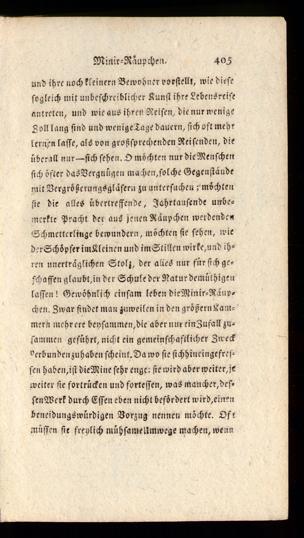 Minir-Räupchen. 405
und ihre noch kleinern Bewohner vorstellt, wie diese
sogleich mit unbeschreiblicher Kunst ihre Lebensreise
antreten, und wie aus ihren Reisen, die nur wenige
Zoll lang sind und wenige Tage dauern, sich oft mehr
lernen lasse, als von großsprechenden Reisenden, die
überall nur—sich sehen. O möchten nur die Menschen
sich öfter das Vergnügen machen, solche Gegenstände
mit Vergrößerungsgläsern zu untersuchen; möchten
sie die alles übertreffende, Jahrtausende unbe-
merkte Pracht der aus jenen Räupchen werdenden
Schmetterlinge bewundern, möchten sie sehen, wie
der Schöpfer im Kleinen und im Stillen wirke, und ih-
ren unerträglichen Stolz, der alles nur für sich ge-
schaffen glaubt, in der Schule der Natur demüthigen
lassen! Gewöhnlich einsam leben die Minir-Räup-
chen. Zwar findet man zuweilen in den größern Kam-
mern mehrere beysammen, die aber nur ein Zufall zu-
sammen geführt, nicht ein gemeinschaftlicher Zweck
verbunden zu haben scheint. Da wo sie sich hineingefres-
sen haben, ist die Mine sehr enge: sie wird aber weiter, je
weiter sie fortrücken und fortessen, was mancher, des-
sen Werk durch Essen eben nicht befördert wird, einen
beneidungswürdigen Vorzug nennen möchte. Oft
müssen sie freylich mühsame Umwege machen, wenn